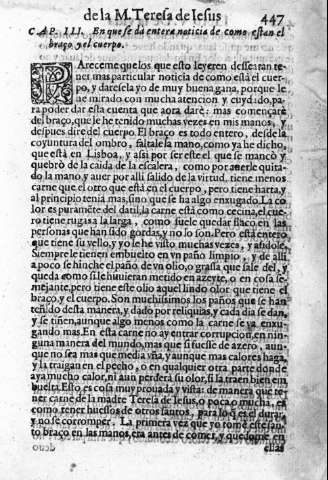 de la M. Teresa de Iesus 447
CAP. III. En que se da entera noticia de como estan el
braço, y el cuerpo.
PAreceme que los que esto leyeren dessearan te-
ner mas particular noticia de como està el cuer-
po, y daresela yo de muy buena gana, porque le
he mirado con mucha atencion y cuydado, pa-
ra poder dar esta cuenta que aora darè: mas començarè
del braço, que le he tenido muchas vezes en mis manos, y
despues dire del cuerpo. El braço es todo entero, desde la
coyuntura del ombro, faltale la mano, como ya he dicho,
que està en Lisboa, y assi por ser este el que se mancò y
quebrò de la caida de la escalera, como por auerle quita-
do la mano y auer por alli salido de la virtud, tiene menos
carne que el otro que està en el cuerpo, pero tiene harta, y
al principio tenia mas, sino que se ha algo enxugado. La co
lor es puramète del datil, la carne està como cecina, el cue
ro tiene rugas a la larga, como suele quedar flaco en las
personas que han sido gordas, y no lo son. Pero està entero,
que tiene su vello, y yo le he visto muchas vezes, y asidole.
Siempre le tienen embuelto en vn paño limpio, y de alli
a poco se hinche el paño de vn olio, o grassa que sale del, y
queda como si le huuieran metido en azeyte, o en cosa se-
mejante. pero tiene este olio aquel lindo olor que tiene el
braço, y el cuerpo. Son muchissimos los paños que se han
tenido desta manera, y dado por reliquias, y cada dia se dan,
y se tiñen, aunque algo menos como la carne se va enxu-
gando mas. En esta carne no ay entrar corrupcion, en nin-
guna manera del mundo, mas que si fuesse de azero, aun-
que no sea mas que media vña, y aunque mas calores haga,
y la traigan en el pecho, o en qualquier otra parte donde
aya mucho calor, ni aun perderà su olor, si la traen bien em
buelta. Esso es cosa muy prouada y vista: de manera que te-
ner carne de la madre Teresa de Iesus, o poca o mucha, es
como tener huessos de otros santos, para lo que es el durar
y no se corromper. La primera vez que yo tomè este san-
to braço en las manos, era antes de comer, y quedome en
ellas